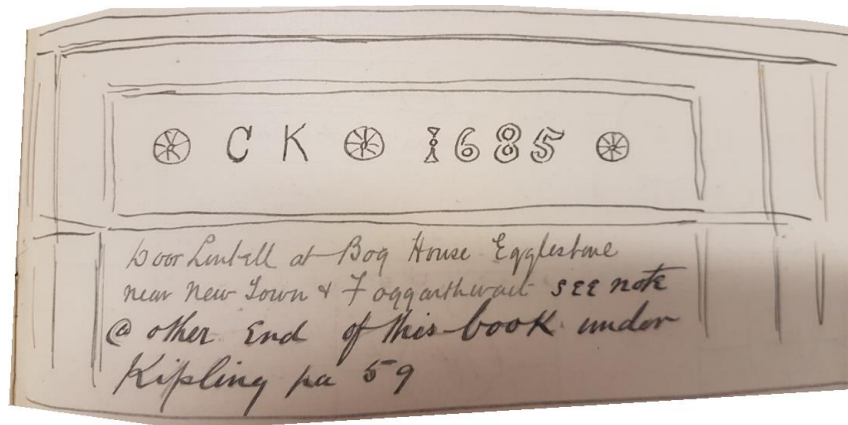 C K 1685
Door Lintell at Bog House Egglestone
near New Town & Foggarthwait SEE note
@ other End of this book under
Kipling pa 59